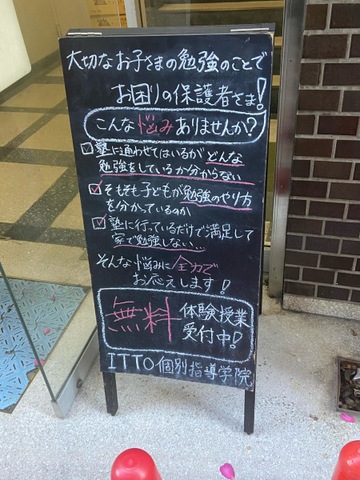 大切なお子さまの勉強のことで
お困りの保護者さま!
こんな悩みありませんか?
塾に通わせてはいるが どんな
勉強をしているか分からない
そもそも子どもが勉強のやり方
を分かっているのか
塾に行っているだけで満足して
家で勉強しない...
そんな悩みに全力で
お応えします!
無料 体験授業
受付中!
ITTO個別指導学院